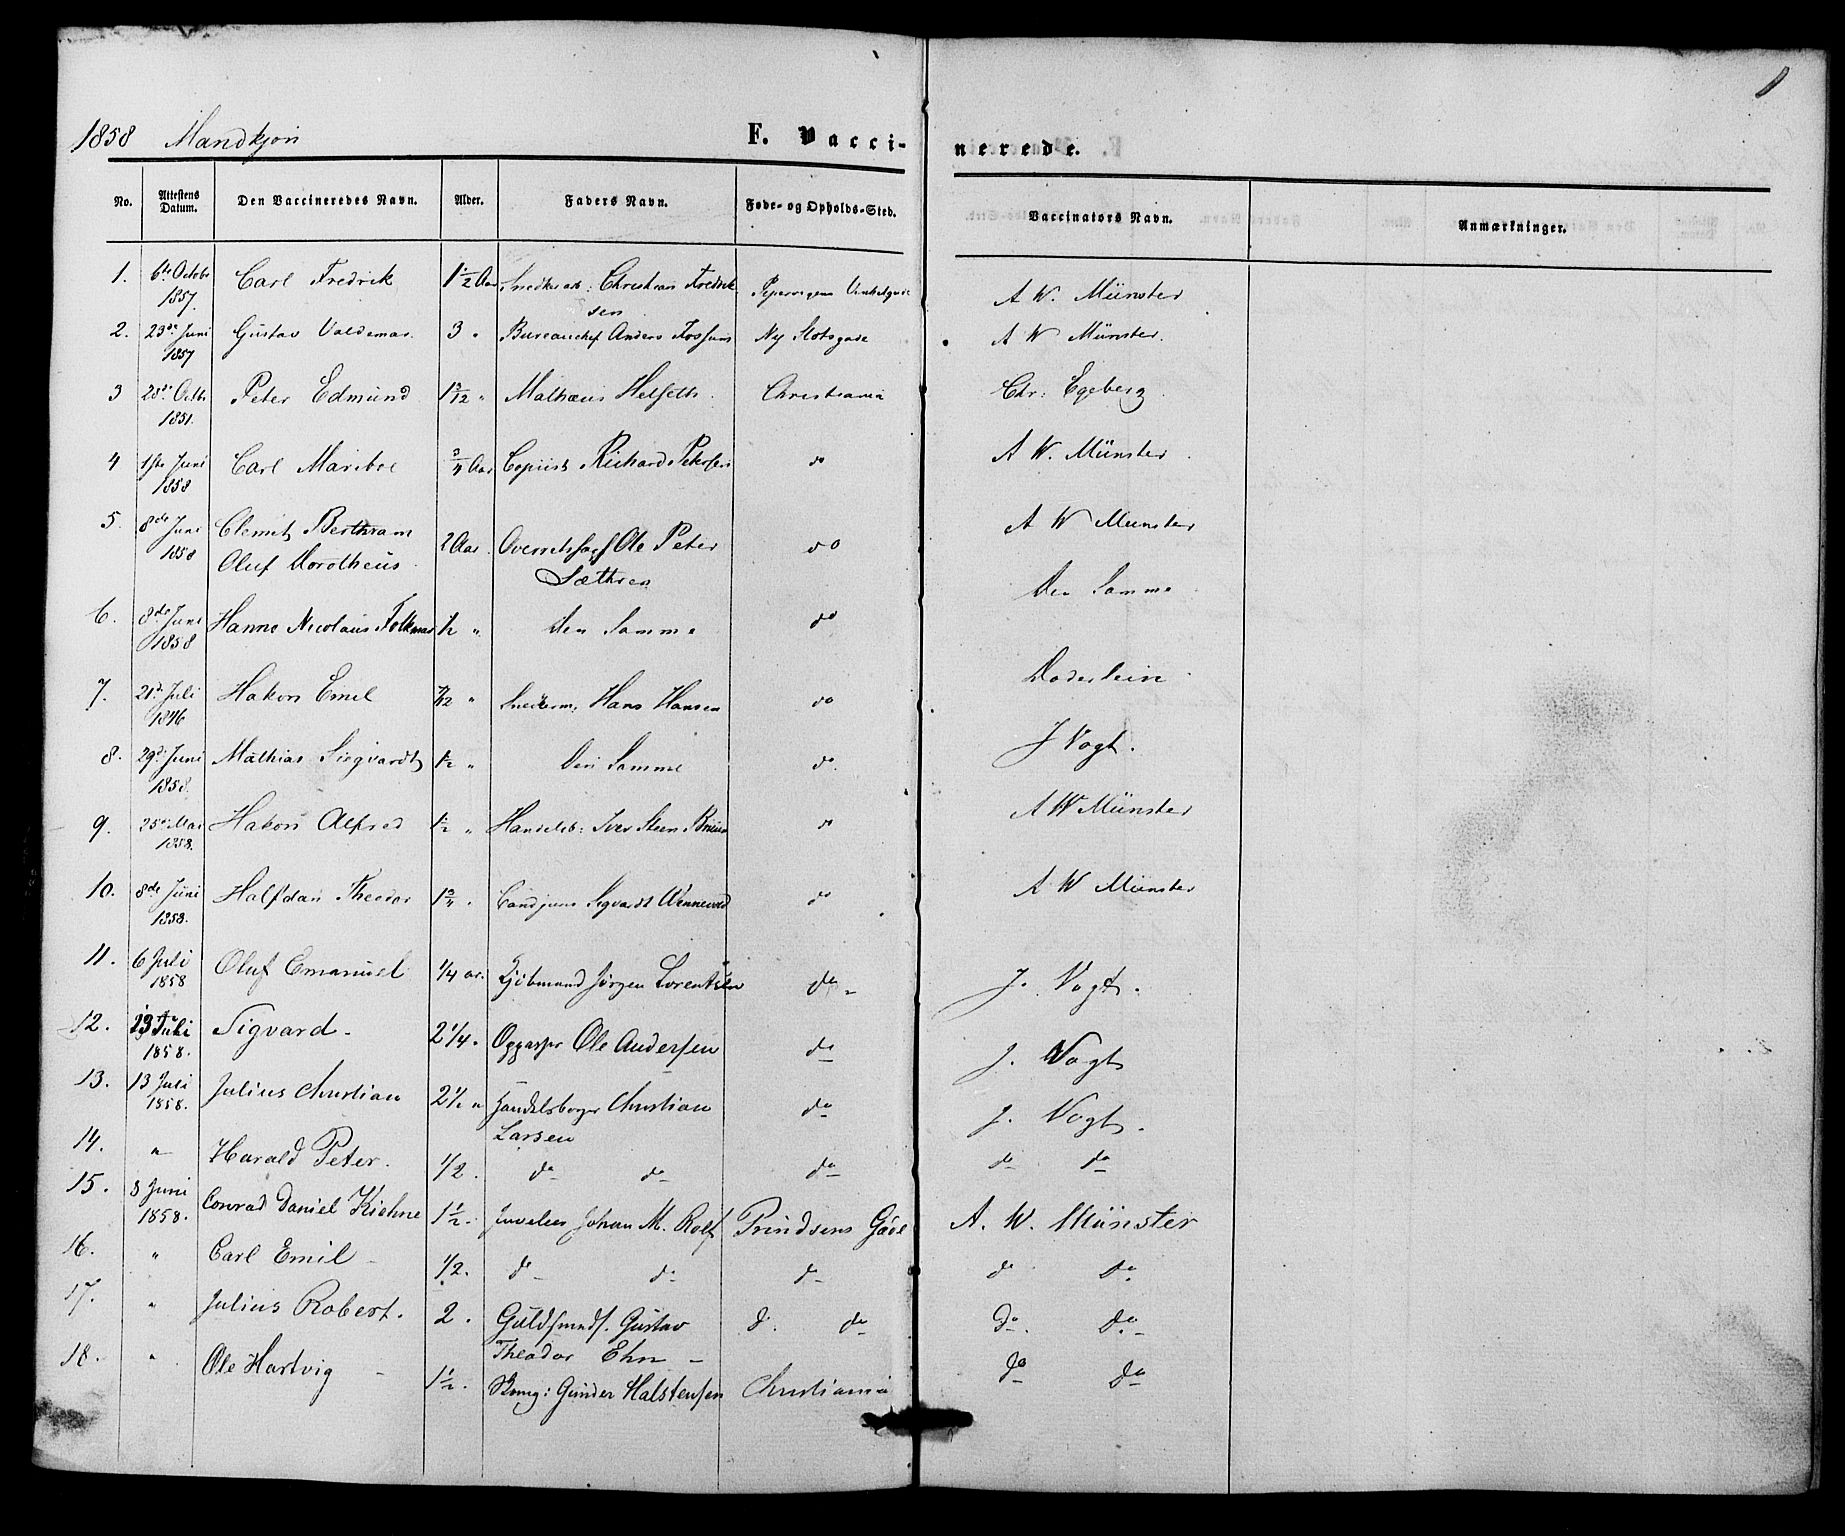 1858 Mandkjøn F. Vaccinerede. 1
No. Attestens Datum. Den Vaccineredes Navn. Alder. Faders Navn. Føde- og Opholds-Sted. Vaccinators Navn. Anmærkninger.
1. 6te Octobr 1857. Carl Fredrik 1 1/2 Aar Christian Fredrik-
sen Pipervigens A W. Münster
2. 23de Juni 1857 Gustav Valdemar. 3 " Bureauchef Anders Fossum Ny Slotsgade A W Münster.
3 28de Octbr 1851. Peter Edmund 1 3/12 " Mathæus Helseth. Christiania Chr: Egeberg.
4 1ste Juni 1858 Carl Maribo 3/4 Aar Copiist Richard Petersen do A W. Münster
5. 8de Juni 1858 Clemitz Berthram
Oluf Dorotheus. 2 Aar. Overretssagf Ole Peter
Sæthren do A W Münster
6. 8de Juni 1858 Hanno Nicolaus Folkmar 1/2 " Den Samme do Den Samme
7. 21de Juli 1846 Hakon Emil 7/12 " Snedkerm. Hans Hansen do Doderlein
8. 29de Juni 1858. Mathias Siegvardt 1 1/2 " Den Samme do. J Vogt.
9. 25de Mai 1858. Hakon Alfred 1 1/2 " Handelsb: Iver Steen do A W Münster
10. 8de Juni 1858. Halfdan Theodor 1 3/4 " Sigvardt Wennevold do A W Münster
11. 6 Juli 1858 Oluf Emanuel 1/4 ar. Kjøbmand Jørgen Lorentzen do J. Vogt.
12. 13de Juli 1858. Sigvard 2 1/4 " Ole Andersen do J. Vogt
13. 13 Juli 1858. Julius Christian 2 1/2 " Handelsborger Christian
Larsen do J. Vogt.
14. " Harald Peter. 1/2. do do do do do
15. 8 Juni 1858. Conrad Daniel Kiehne 1 1/2. Juveleer Johan M. Rolf Prindsens Gade A. W. Münster
16. " Carl Emil 1/2. do do do do do
17. " Julius Robert. 2. Guldsmeds. Gustav
Theodor Ehn do do do do
18. " Ole Hartvig 1 1/2. Gunder Halstensen Christiania do do